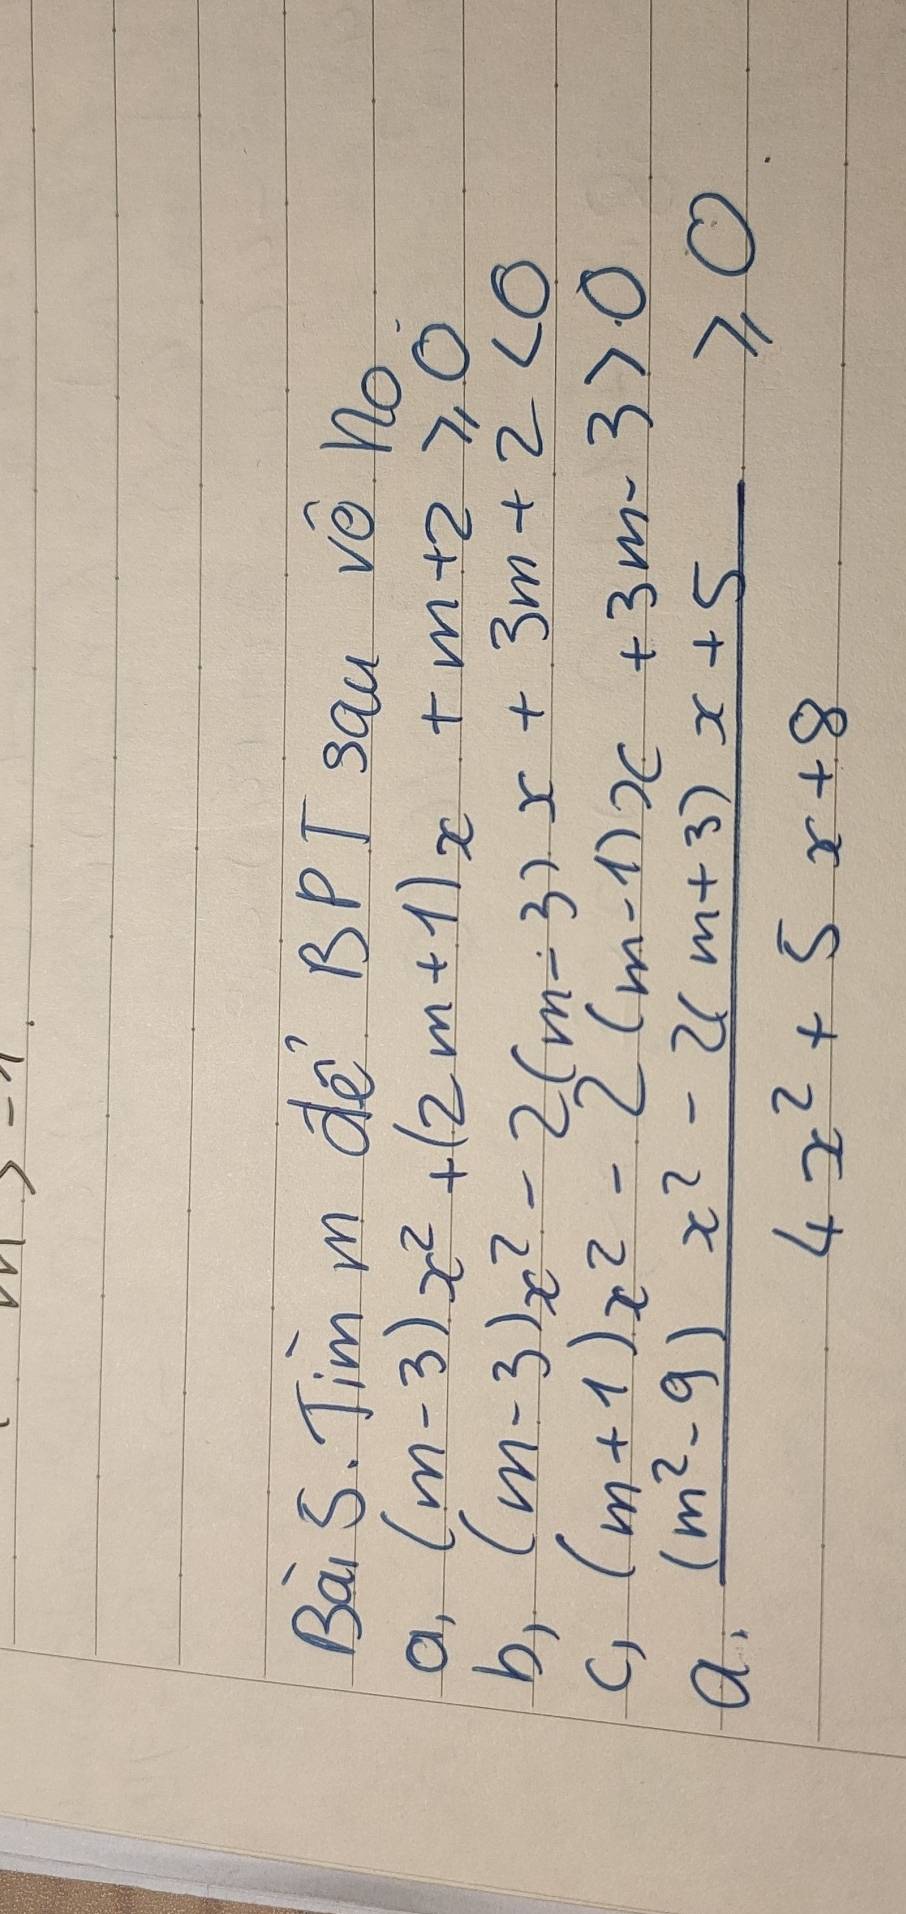 Bài 5. Tìm m để BPT sau vô no
a, (m-3)x² + (2m+1)x + m+2 ⩾ 0
b, (m-3)x² - 2(m-3)x + 3m+2 < 0
c, (m+1)x² - 2(m-1)x + 3m-3 > 0
a, (m²-9)x² - 2(m+3)x+5 ⩾ 0
4x² + 5x+8